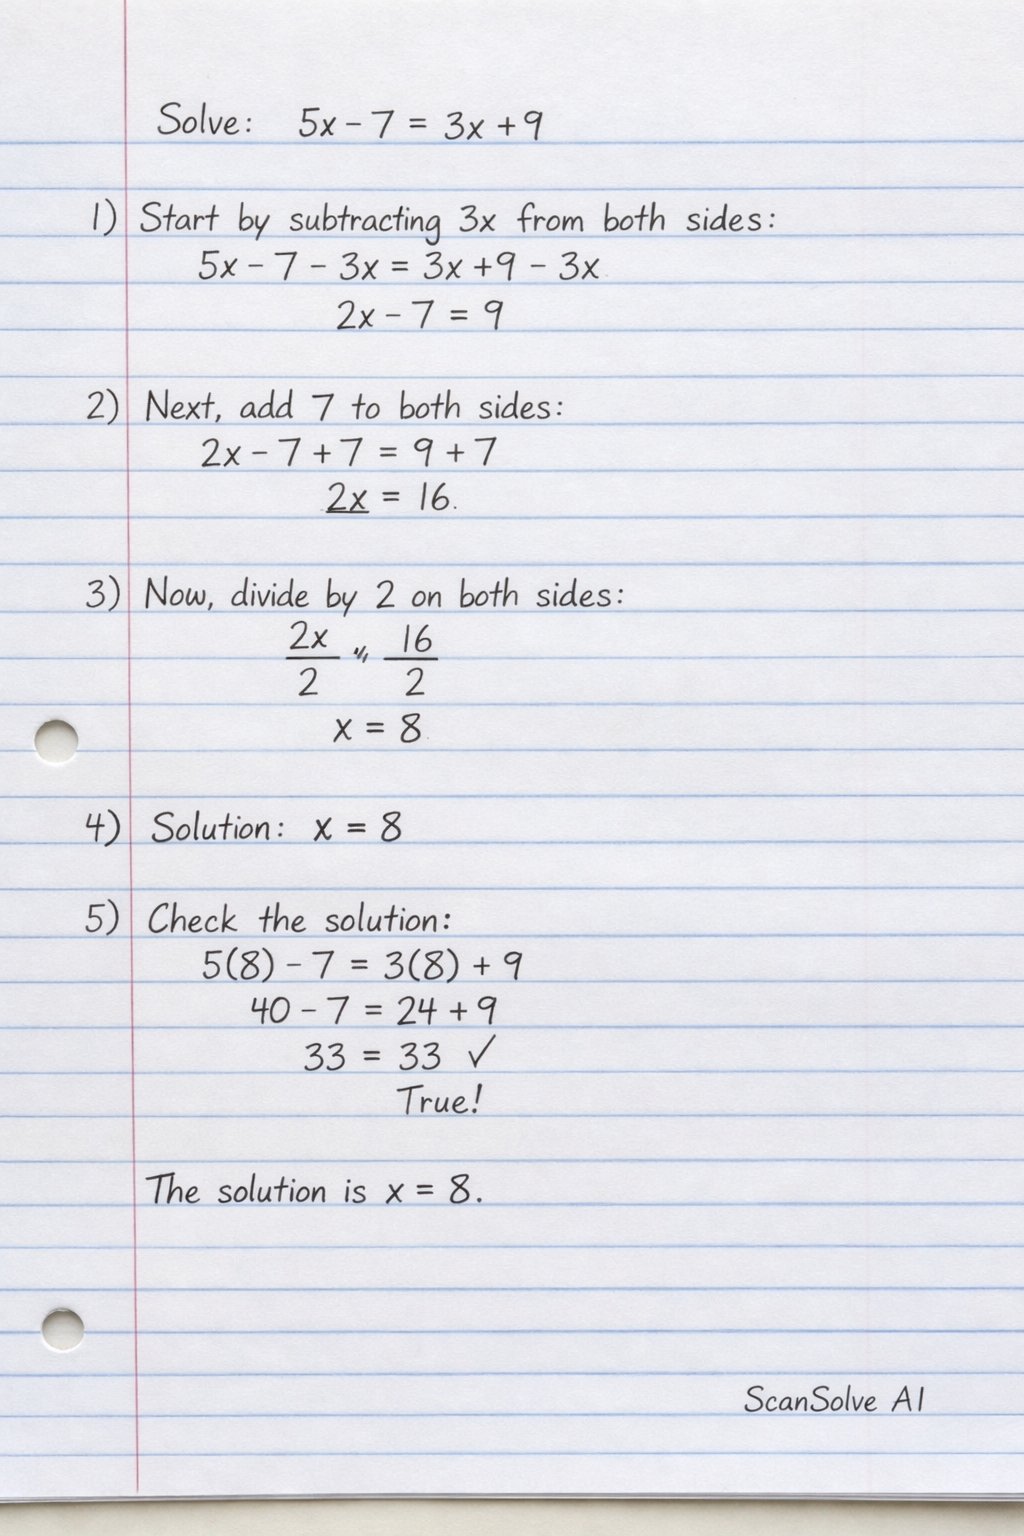 Solve: 5x - 7 = 3x + 9
1) Start by subtracting 3x from both sides:
5x - 7 - 3x = 3x + 9 - 3x
2x - 7 = 9
2) Next, add 7 to both sides:
2x - 7 + 7 = 9 + 7
2x = 16.
3) Now, divide by 2 on both sides:
2x/2 〃 16/2
x = 8
4) Solution: x = 8
5) Check the solution:
5(8) - 7 = 3(8) + 9
40 - 7 = 24 + 9
33 = 33 ✓
True!
The solution is x = 8.
ScanSolve AI